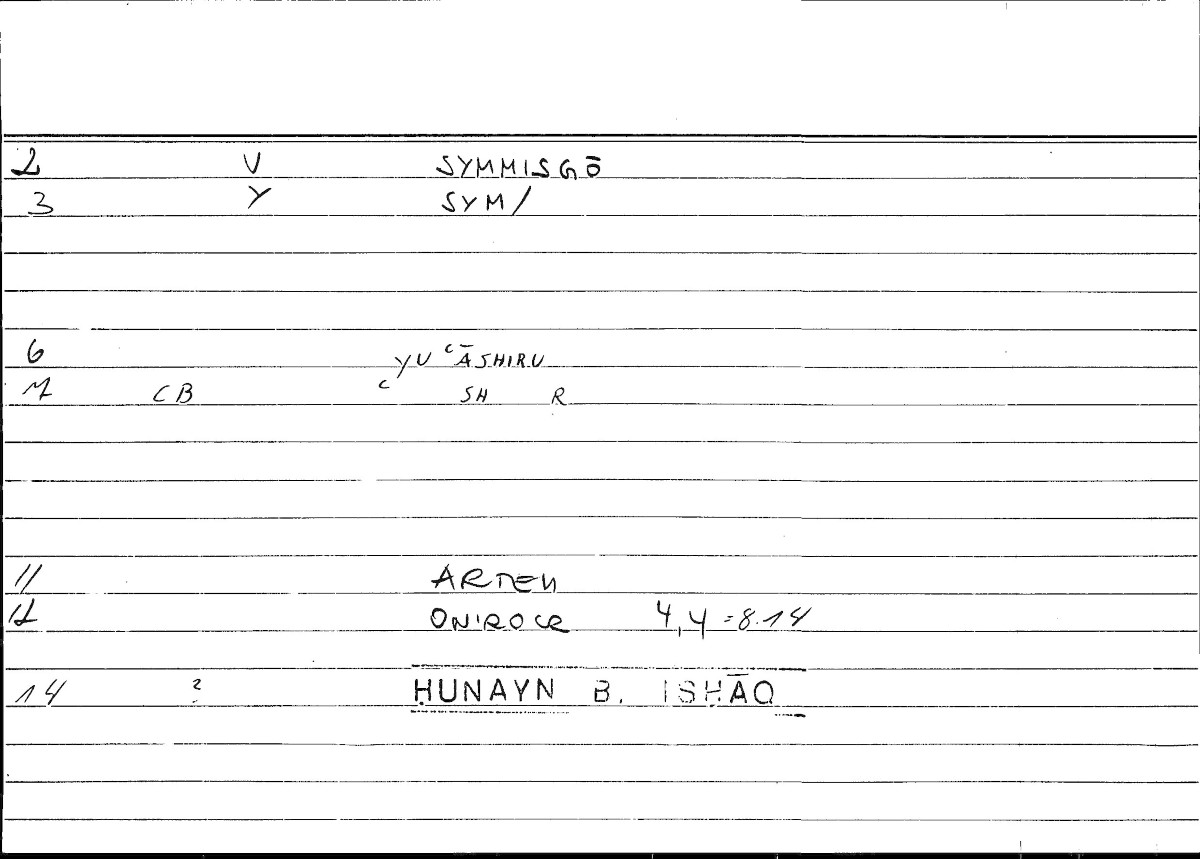 2 V SYMMISGŌ
3 Y SYM/
6 YU ʿĀSHIRU
7 CB ʿ SH R
11 ARTEM
12 ONIROCR 4,4=8.14
14 ? ḤUNAYN B. ISḤĀQ